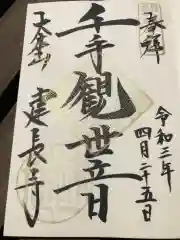 奉拝
令和三年
四月二十五日
千手観世音
建長寺